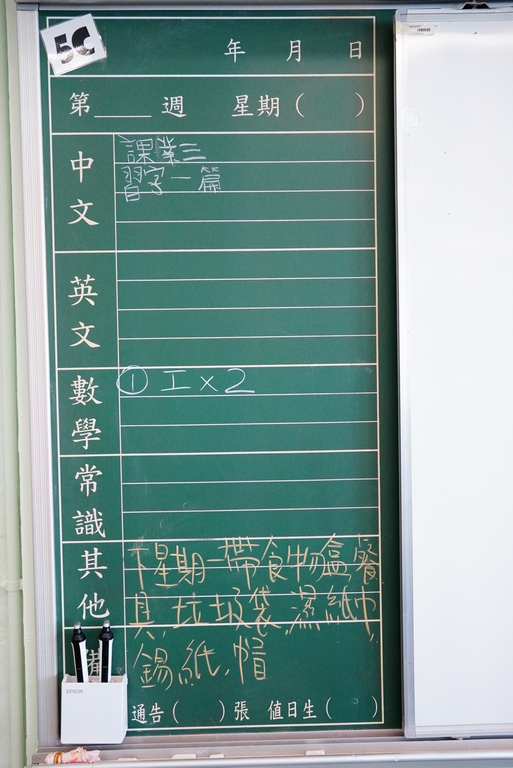 5C
年 月 日
第____週 星期( )
中文
課業三
習字一篇
英文
數學
① 工×2
常識
其他
下星期一帶食物盒,餐
具,垃圾袋,濕紙巾,
錫紙,帽
備
EPSON
通告( )張 值日生( )